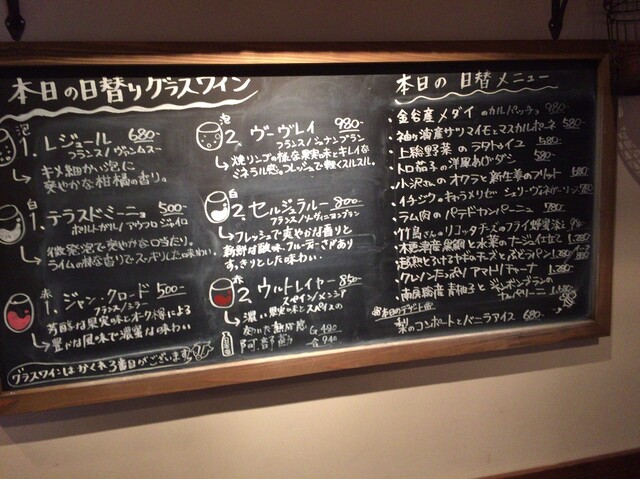 本日の日替りグラスワイン
泡
1. レジュール 680-
フランス/ヴァンムスー
→ キメ細かい泡に
爽やかな柑橘の香り。
白
1. テラスドミーニョ 500-
ポルトガル/
微発泡で爽やかな口当たり。
ライムの様な香りでスッキリした味わい
赤
1. ジャン・クロード 500-
フランス/
芳醇な果実味とオーク樽による
豊かな風味で濃密な味わい
グラスワインはかくれ3番目がございます
泡
2. ヴーヴレイ 980-
フランス/シュナンブラン
→ 焼リンゴの様な果実の味とキレイな
ミネラル感。フレッシュで軽くスルスル。
白
2. セルジュラルー 800-
フランス/ソーヴィニヨンブラン
→ フレッシュで爽やかな香りと
新鮮な酸味、フルーティさがあり
すっきりとした味わい。
赤
2. ウルトレイヤー 850-
スペイン/メンシア
→ 濃い果実味とスパイスの
G 490-
本日の 日替メニュー
・金谷産メダイのカルパッチョ 980-
・袖ヶ浦産サツマイモとマスカルポーネ 580-
・上総野菜のラタトゥイユ 580-
・トロ茄子の洋風あげダシ 580-
・小沢さんのオクラと新生姜のフリット 580-
・イチジクのキャラメリゼ
・ラム肉のパテドカンパーニュ
・竹島さんのリコッタチーズのフライ蜂蜜添え
・木更津産 と水菜のナージュ仕立て 1,280
・クレソンたっぷりアマトリチャーナ 1,380
・南房総産青柚子とジャンボンブランの
カルボナーラ
本日のデザート
梨のコンポートとバニラアイス 680-